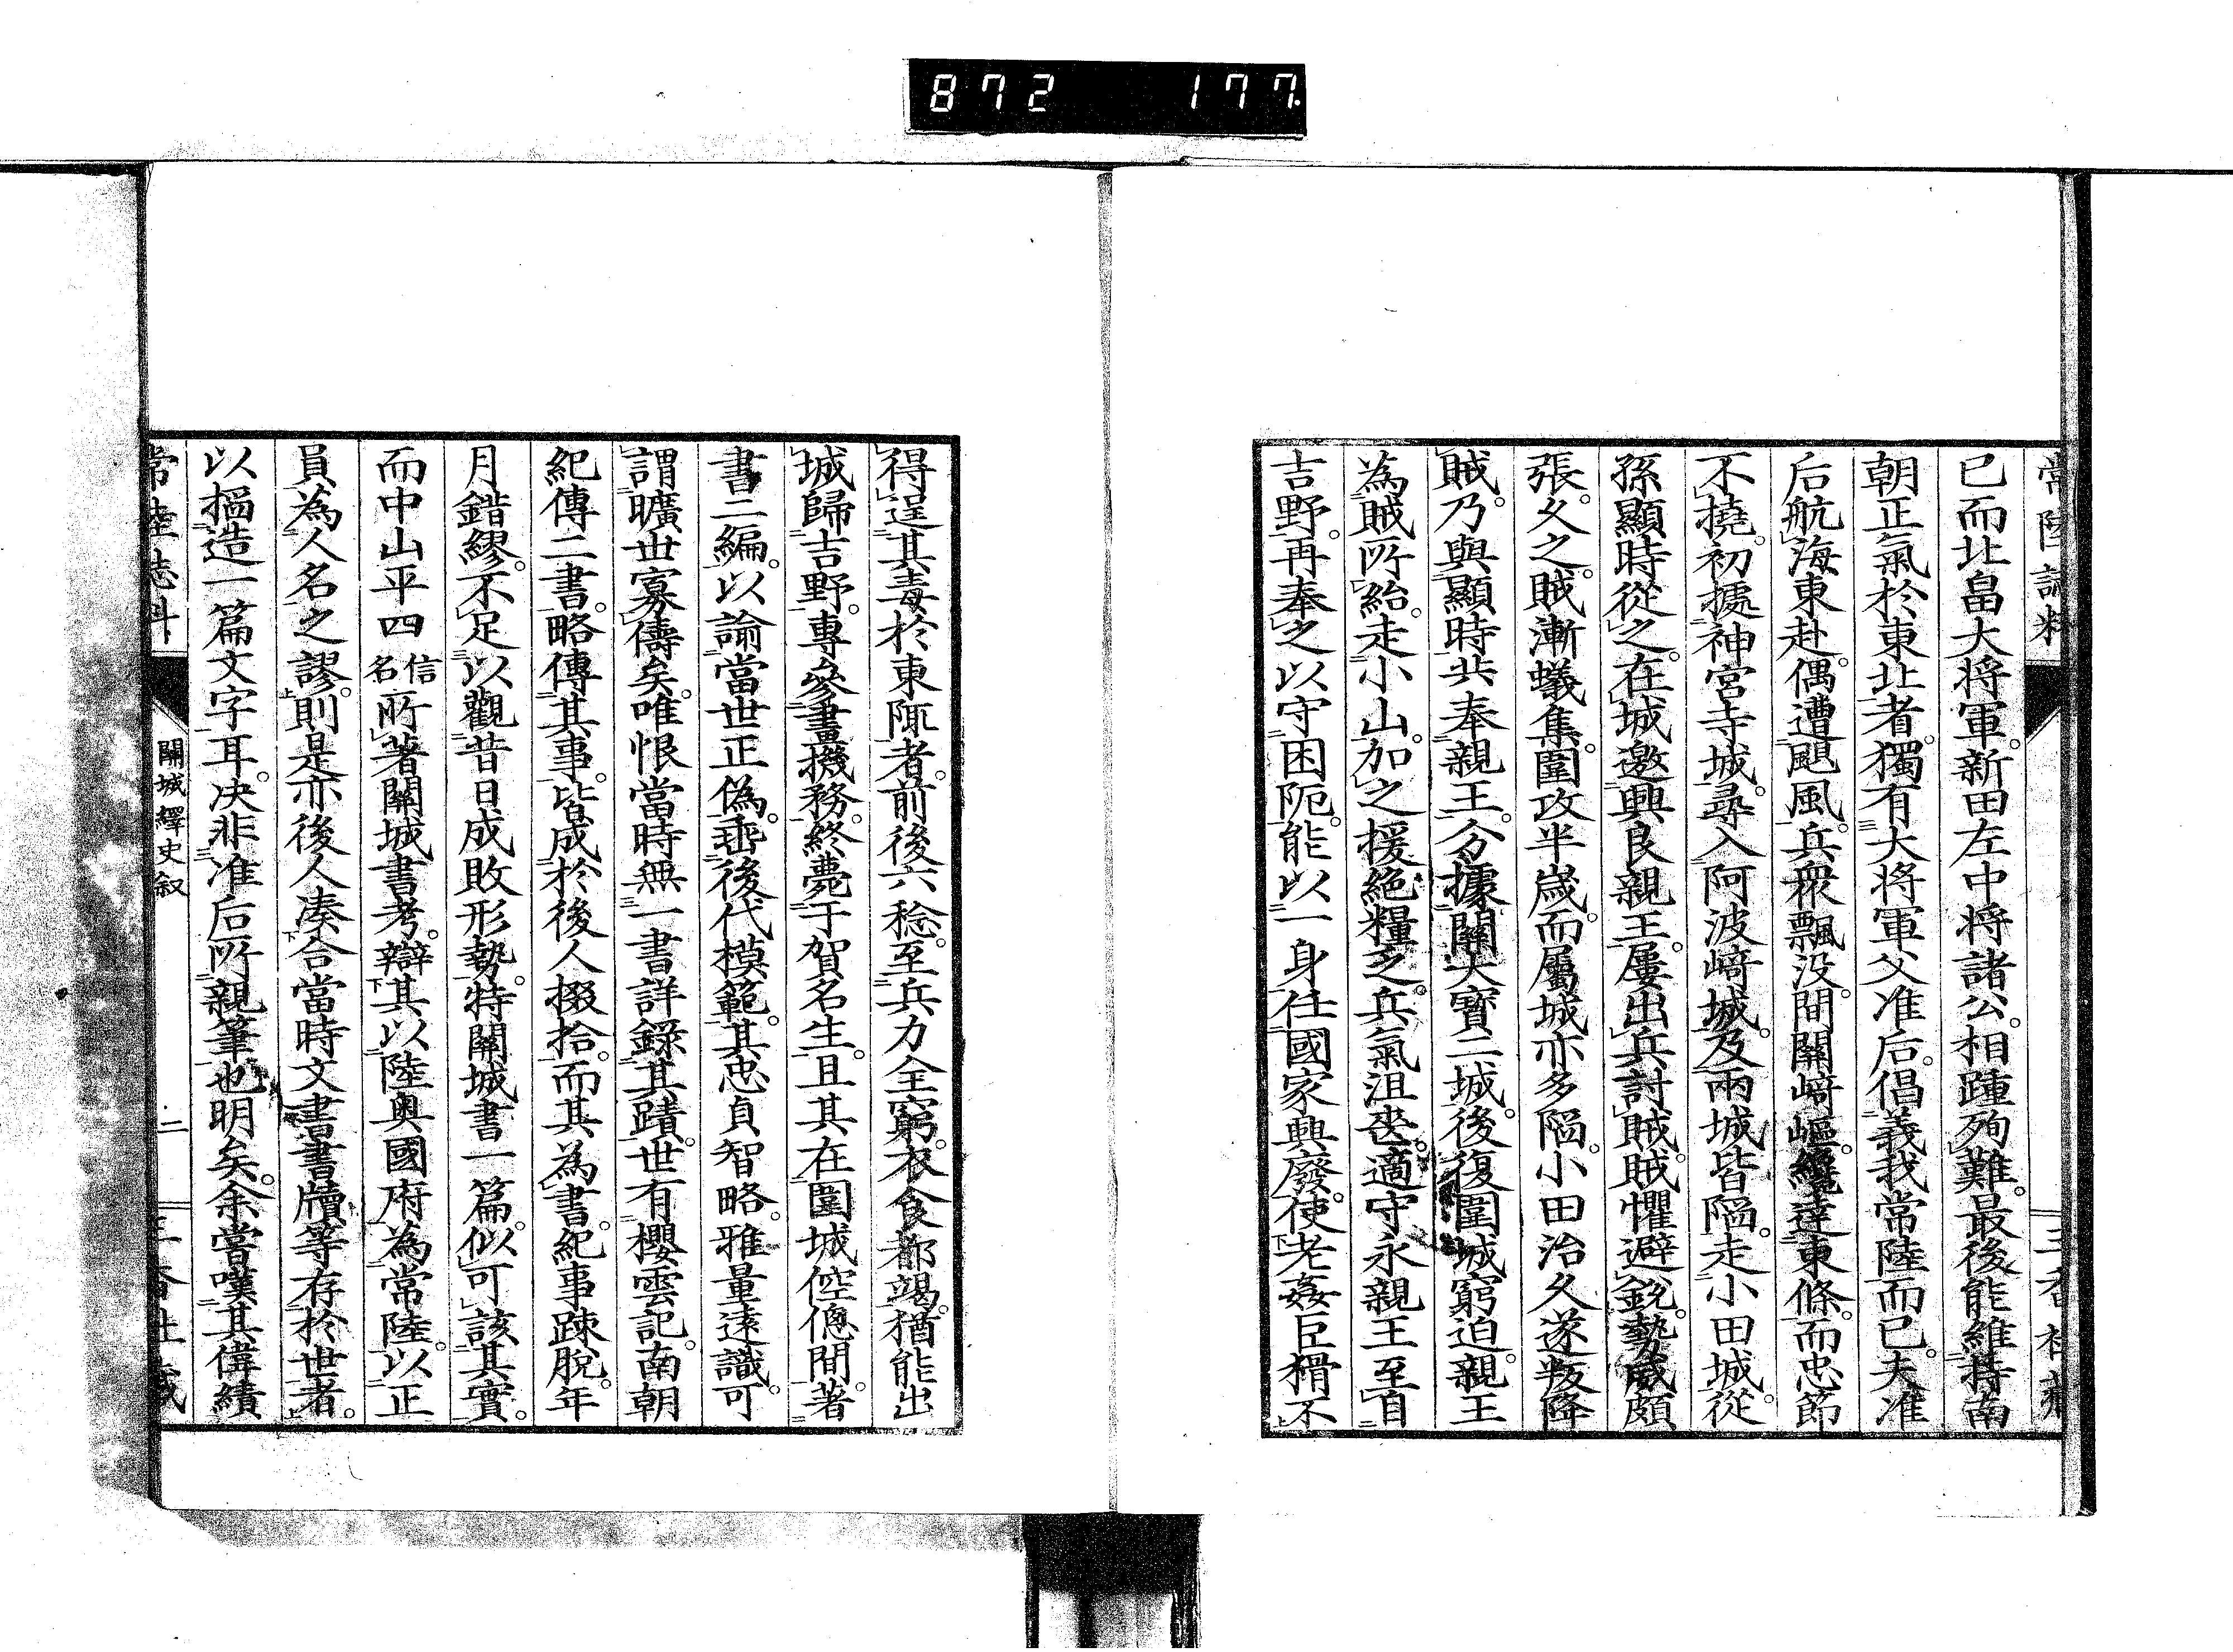 872 177
已而北畠大将軍。新田左中将諸公。相踵殉難。最後能維持南
朝正氣於東北者。獨有大将軍父准后。倡義我常陸而已。夫准
后航海東赴。偶遭颶風。兵衆飄没。間關﨑嶇。纔達東條。而忠節
不撓。初據神宮寺城。尋入阿波﨑城。及兩城皆陷。走小田城。從
孫顯時從之。在城邀興良親王。屢出兵討賊。賊懼避銳。勢威頗
張。久之。賊漸蟻集。圍攻半歳。而屬城亦多陷。小田治久遂叛降
賊。乃與顯時共奉親王。分據關大寶二城。後復圍城窮迫。親王
為賊所紿。走小山。加之援絶糧乏。兵氣沮喪。適守永親王至自
吉野。再奉之以守困阨。能以一身任國家興廢。使老姦臣猾不
得逞其毒於東陬者。前後六稔。至兵力全窮。衣食都竭。猶能出
城歸吉野。專參畫機務。終薨于賀名生。且其在圍城倥偬間。著
書二編。以諭當世正偽。垂後代模範。其忠貞智略。雅量遠識。可
謂曠世寡儔矣。唯恨當時無一書詳錄其蹟。世有櫻雲記。南朝
紀傳二書。略傳其事。皆成於後人掇拾。而其為書。紀事踈脱。年
月錯繆。不足以觀昔日成敗形勢。特關城書一篇。似可該其實。
而中山平四信名所著關城書考。辯其以陸奥國府為常陸。以正
員為人名之謬。則是亦後人湊合當時文書書牘等存於世者。
以搵造一篇文字耳。决非准后所親筆也明矣。余嘗嘆其偉績
常陸志料 關城繹史叙 二